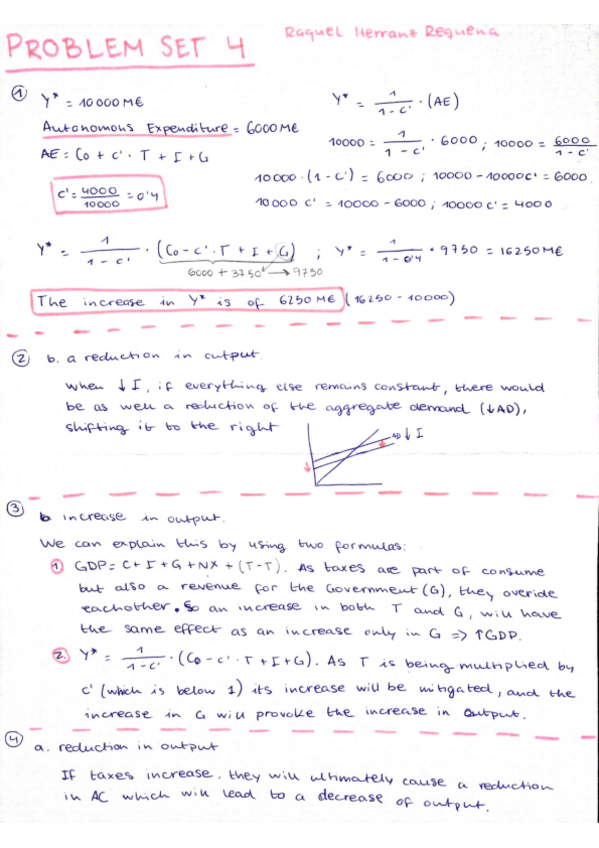 PROBLEM SET 4
Raquel Herranz Requena
① Y* = 10000 M€
Autonomous Expenditure = 6000 M€
AE = Co + c' · T + I + G
c' = 4000/10000 = 0'4
Y* = 1/(1 - c') · (AE)
10000 = 1/(1 - c') · 6000 ; 10000 = 6000/(1 - c')
10000 · (1 - c') = 6000 ; 10000 - 10000c' = 6000
10000 c' = 10000 - 6000 ; 10000c' = 4000
Y* = 1/(1 - c') · (Co - c' · T + I + G) ; Y* = 1/(1 - 0'4) · 9750 = 16250 M€
6000 + 3750 → 9750
The increase in Y* is of 6250 M€ (16250 - 10000)
② b. a reduction in output.
When ↓ I, if everything else remains constant, there would
be as well a reduction of the aggregate demand (↓AD),
shifting it to the right
↓ I
③ b increase in output.
We can explain this by using two formulas:
1 GDP = C + I + G + NX + (T - T). As taxes are part of consume
but also a revenue for the Government (G), they overide
eachother. So an increase in both T and G, will have
the same effect as an increase only in G => ↑GDP.
2. Y* = 1/(1 - c') · (Co - c' · T + I + G). As T is being multiplied by
c' (which is below 1) its increase will be mitigated, and the
increase in G will provoke the increase in output.
④ a. reduction in output
If taxes increase, they will ultimately cause a reduction
in AC which will lead to a decrease of output.